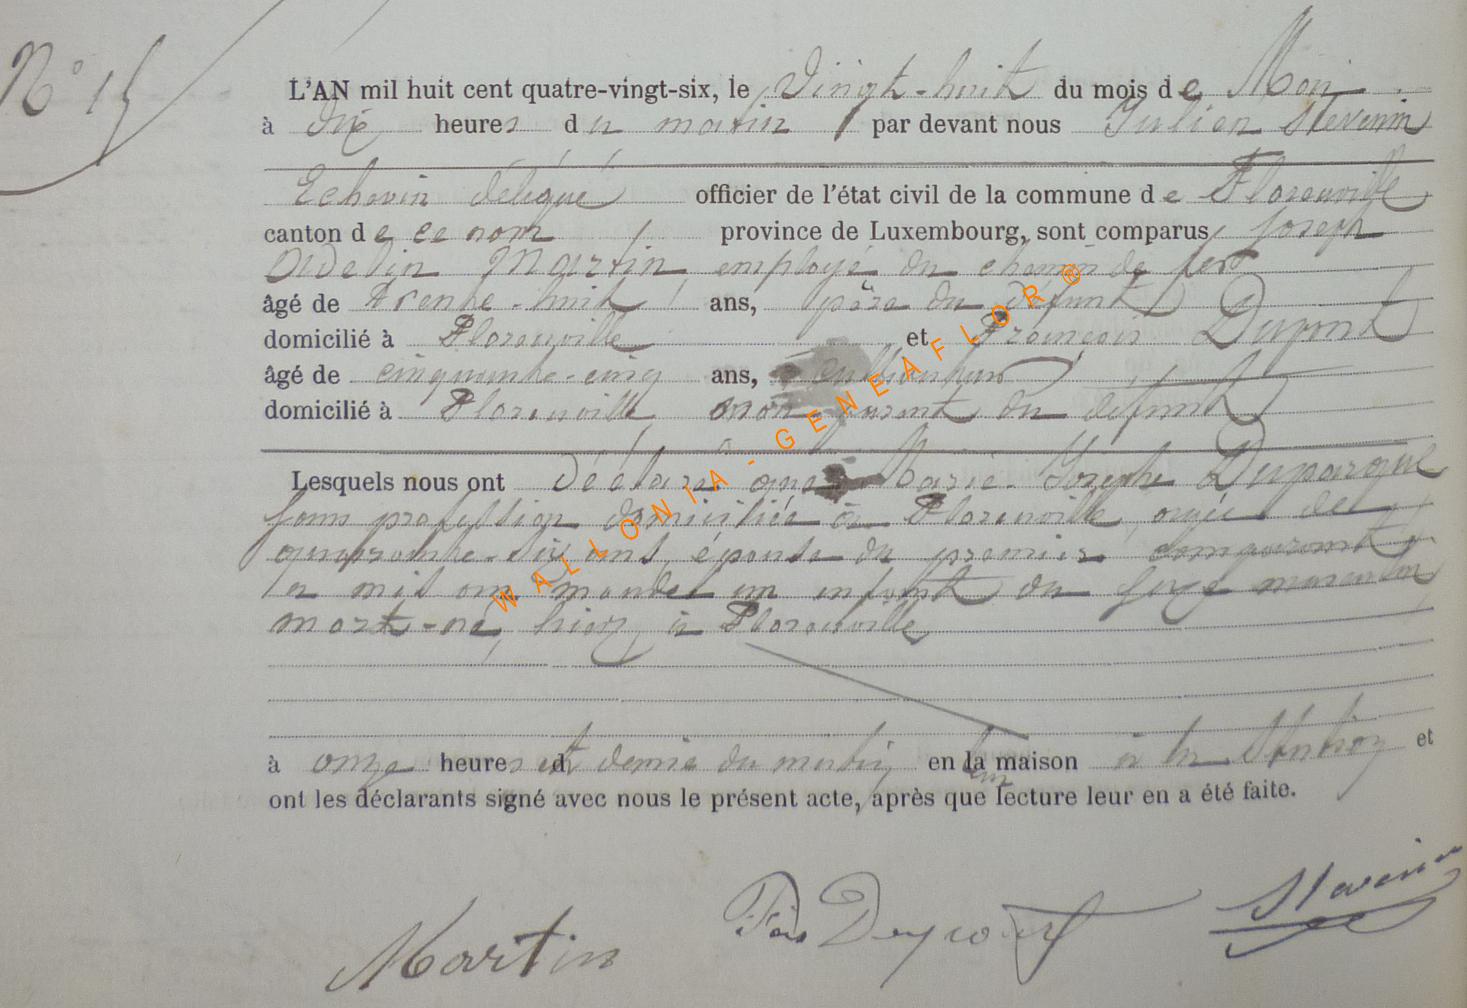 N° 15
L'AN mil huit cent quatre-vingt-six, le Vingt-huit du mois de Mai
à dix heures du matin par devant nous Julien Stevenin
Echevin délégué officier de l'état civil de la commune de Florenville
canton de ce nom province de Luxembourg, sont comparus Joseph
Martin employé du chemin de fer
âgé de trente-huit ans, père du défunt
domicilié à Florenville et François
âgé de cinquante-cinq ans, cultivateur
domicilié à Florenville non parent du défunt
Lesquels nous ont déclaré que Marie Josèphe Duparque
sans profession domiciliée à Florenville, âgée de
quarante-six ans, épouse du premier comparant
a mis au monde un enfant du sexe masculin
mort-né, hier, à Florenville
à onze heures et demie du matin en la maison à la Station et
ont les déclarants signé avec nous le présent acte, après que lecture leur en a été faite.
Martin
Stevenin
WALLONIA-GENEAFLOR®